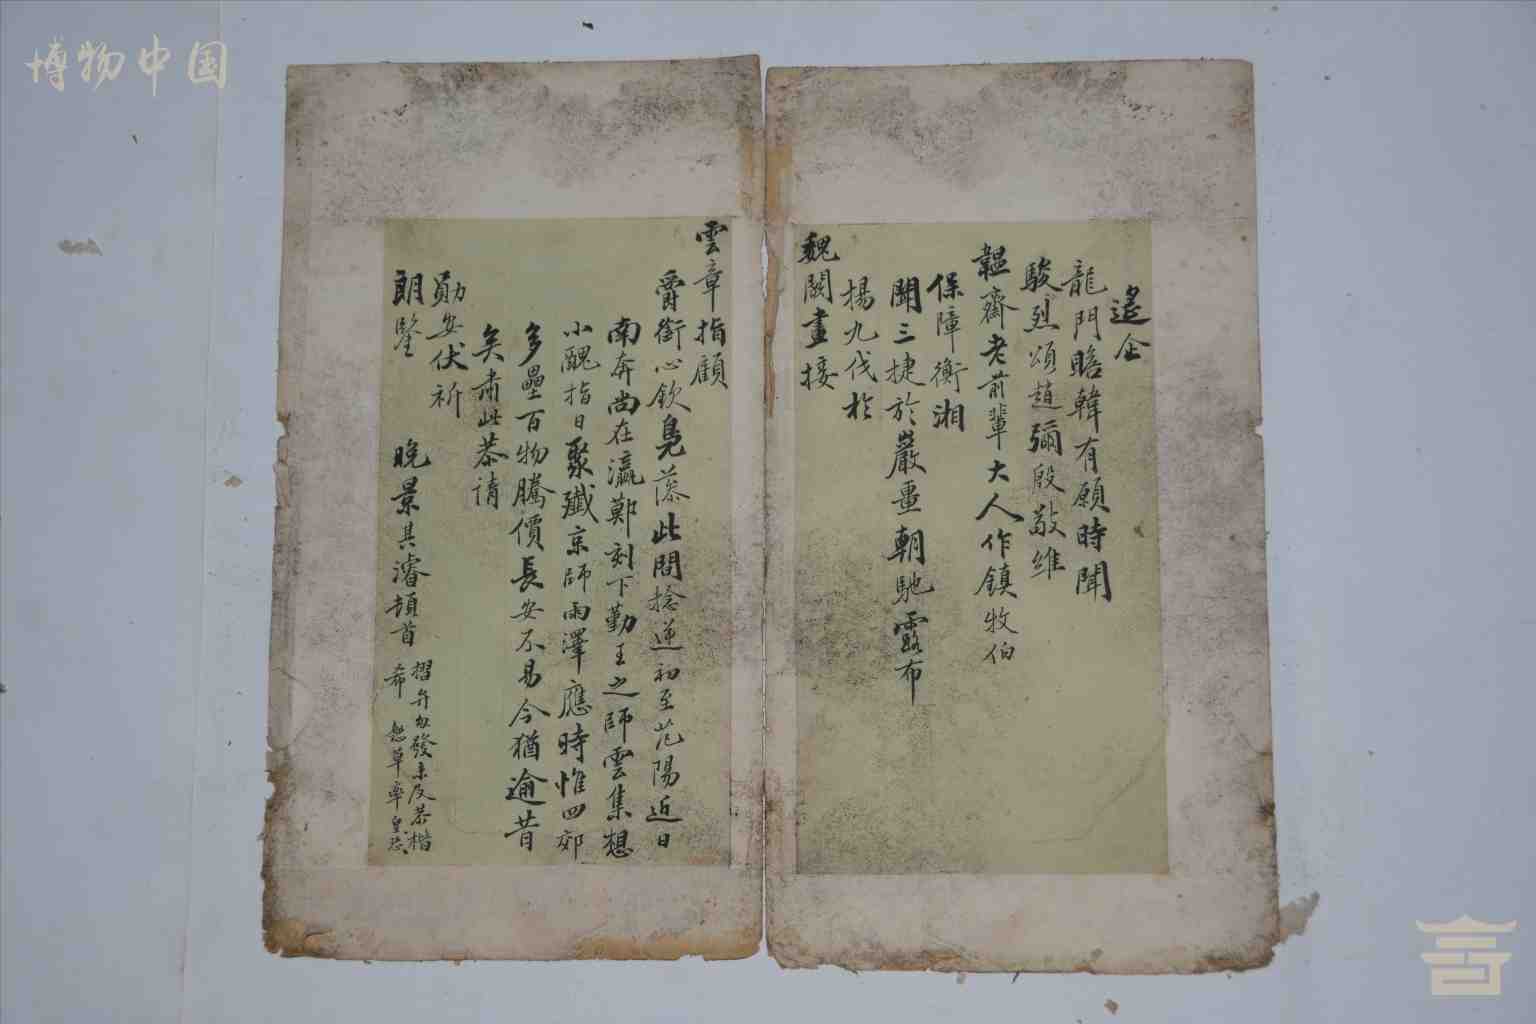 博物中国
遙企
龍門瞻韓有願時聞
駿烈頌趙彌殷敬維
韞齋老前輩大人作鎮牧伯
保障衡湘
聞三捷於嚴畺朝馳露布
揚九伐於
魏闕晝接
雲章指顧
爵銜心欽鳧藻此間捻逆初至范陽近日
南奔尚在瀛鄭刻下勤王之師雲集想
小醜指日聚殲京師雨澤應時惟四郊
多壘百物騰價長安不易今猶逾昔
矣肅此恭請
勛安伏祈
朗鑒
晚景其濬頓首
摺弁勿發未及恭楷
希恕草率皇恐